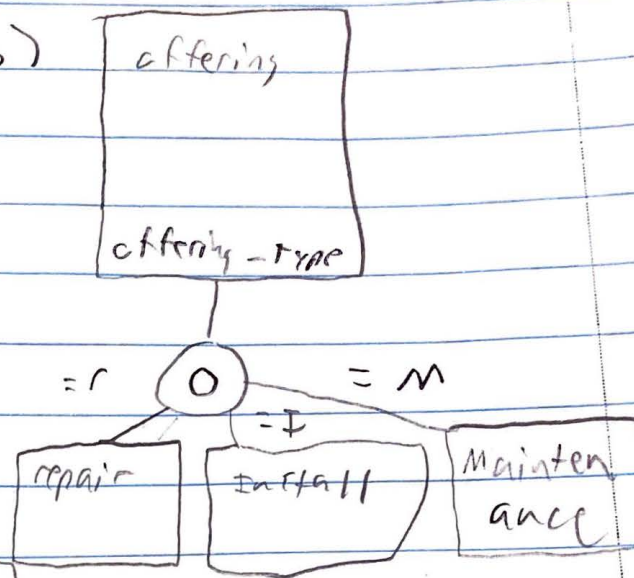 )
offering
offering_type
=r
O
=M
=I
repair
Install
Mainten
ance